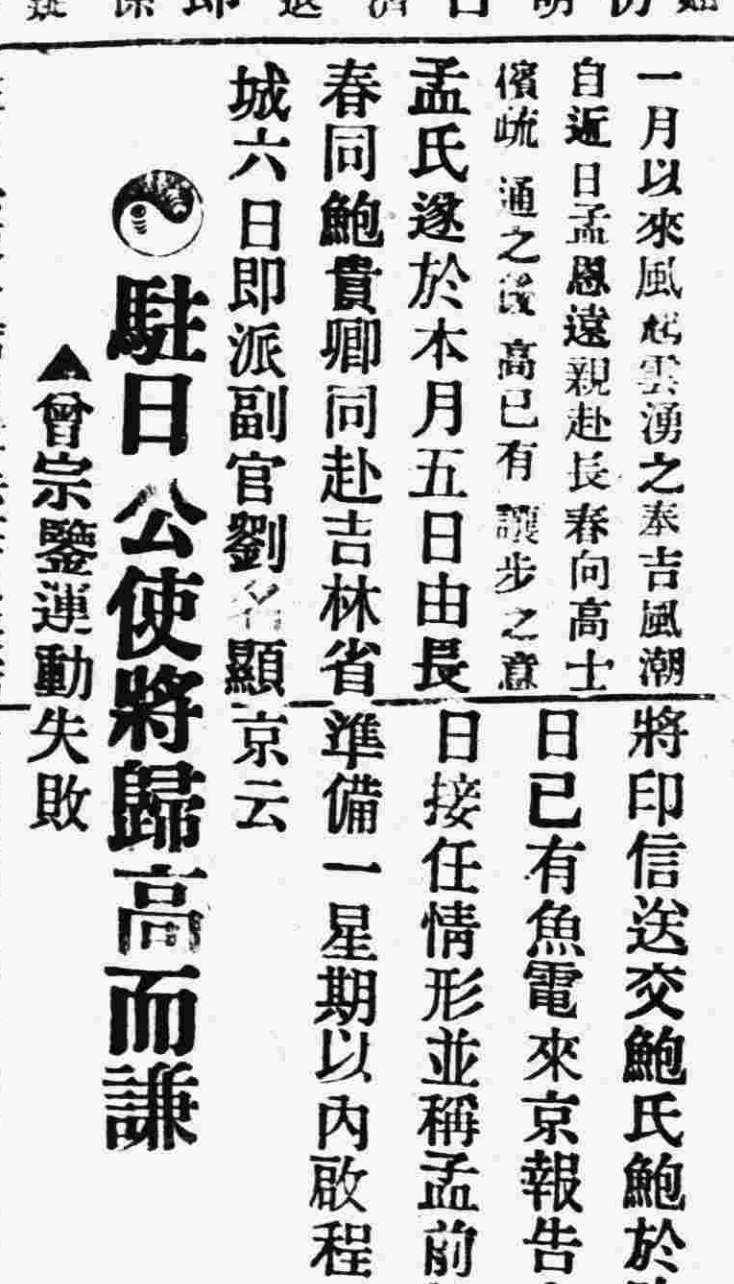 一月以來風起雲湧之奉吉風潮
自近日孟恩遠親赴長春向高士
儐疏通之後高已有讓步之意
孟氏遂於本月五日由長
春同鮑貴卿同赴吉林省
城六日即派副官劉名顯
將印信送交鮑氏鮑於
日已有魚電來京報告
日接任情形並稱孟前
準備一星期以內啟程
京云
駐日公使將歸高而謙
▲曾宗鑒運動失敗